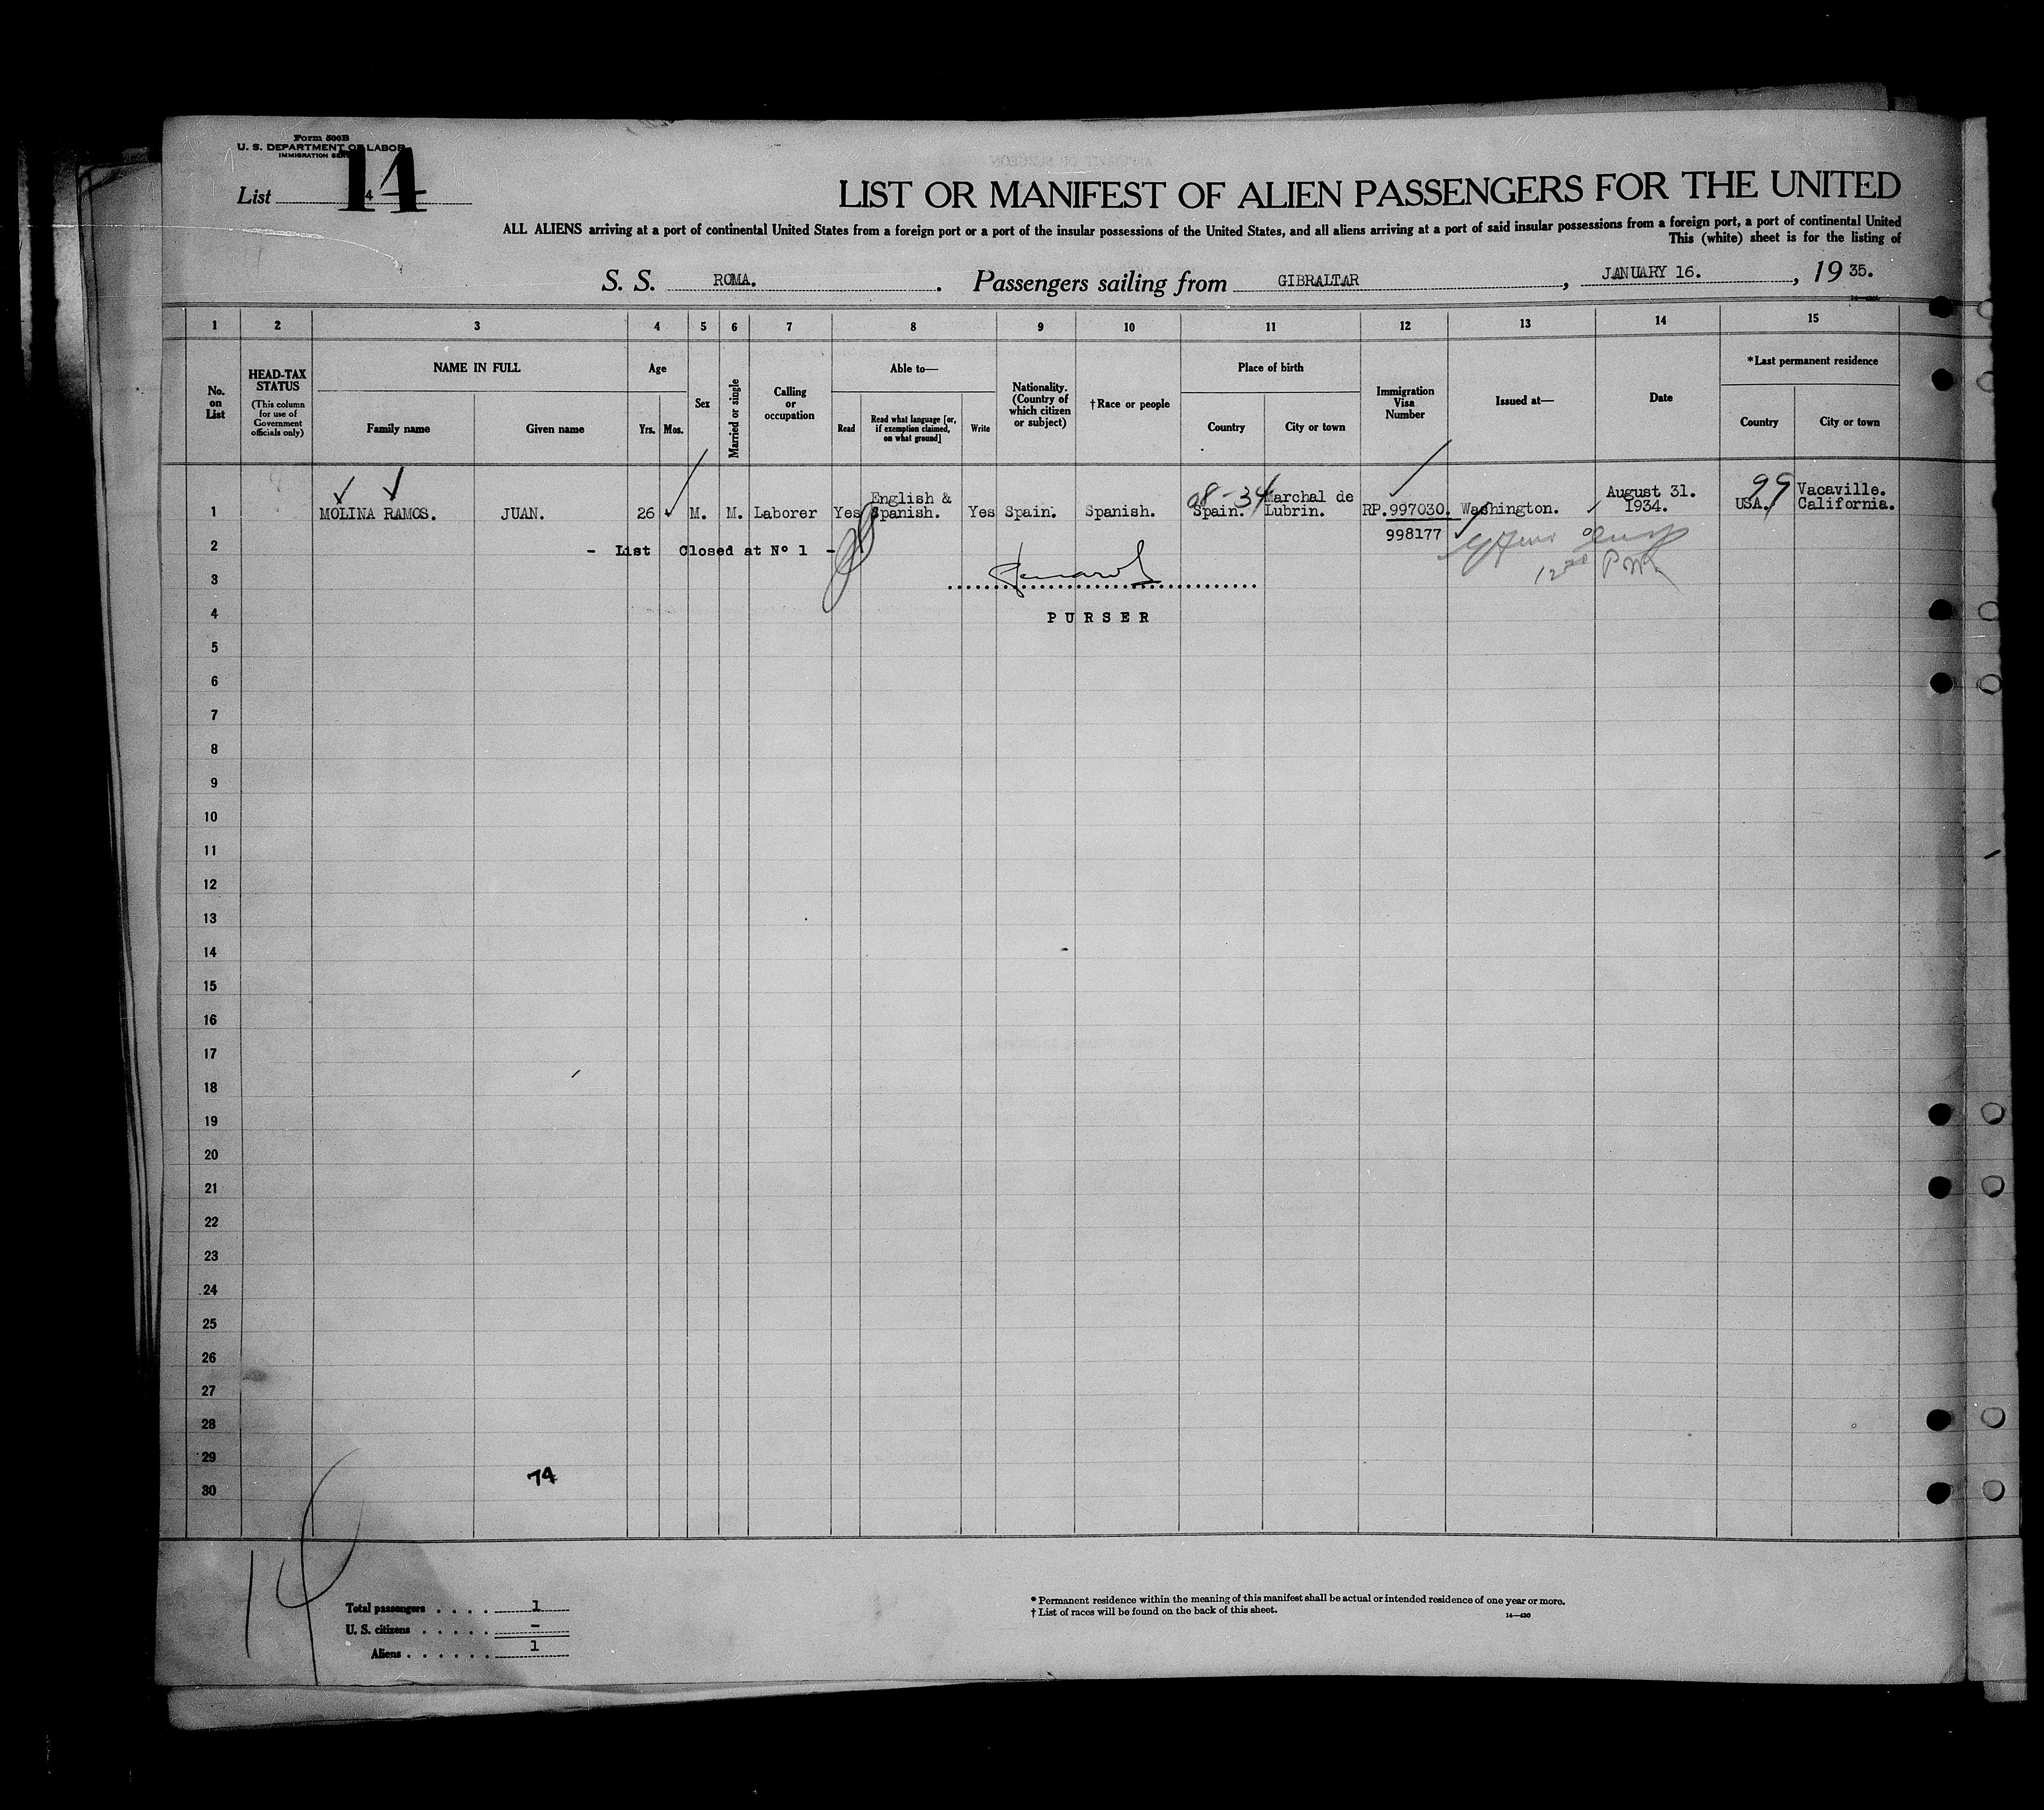 Form 500B
U. S. DEPARTMENT OF LABOR
IMMIGRATION
List 4
14
LIST OR MANIFEST OF ALIEN PASSENGERS FOR THE UNITED
ALL ALIENS arriving at a port of continental United States from a foreign port or a port of the insular possessions of the United States, and all aliens arriving at a port of said insular possessions from a foreign port, a port of continental United
This (white) sheet is for the listing of
S. S. ROMA. . Passengers sailing from GIBRALTAR , JANUARY 16. , 19 35.
1 2 3 4 5 6 7 8 9 10 11 12 13 14 15
No. on List
HEAD-TAX STATUS
(This column for use of Government officials only)
NAME IN FULL
Family name Given name
Age
Yrs. Mos.
Sex
Married or single
Calling or occupation
Able to—
Read
Read what language [or, if exemption claimed, on what ground]
Write
Nationality. (Country of which citizen or subject)
†Race or people
Place of birth
Country City or town
Immigration Visa Number
Issued at—
Date
*Last permanent residence
Country City or town
1 MOLINA RAMOS. JUAN. 26 M. M. Laborer Yes English & Spanish. Yes Spain. Spanish. Spain. Marchal de Lubrin. RP.997030. Washington. August 31. 1934. USA. Vacaville. California.
08-34
99
998177
2 - List Closed at Nº 1 -
12 P M
3
PURSER
4
5
6
7
8
9
10
11
12
13
14
15
16
17
18
19
20
21
22
23
24
25
26
27
28
29
74
30
14
Total passengers . . . . 1
U. S. citizens . . . . . -
Aliens . . . . . . 1
* Permanent residence within the meaning of this manifest shall be actual or intended residence of one year or more.
† List of races will be found on the back of this sheet.
14—430